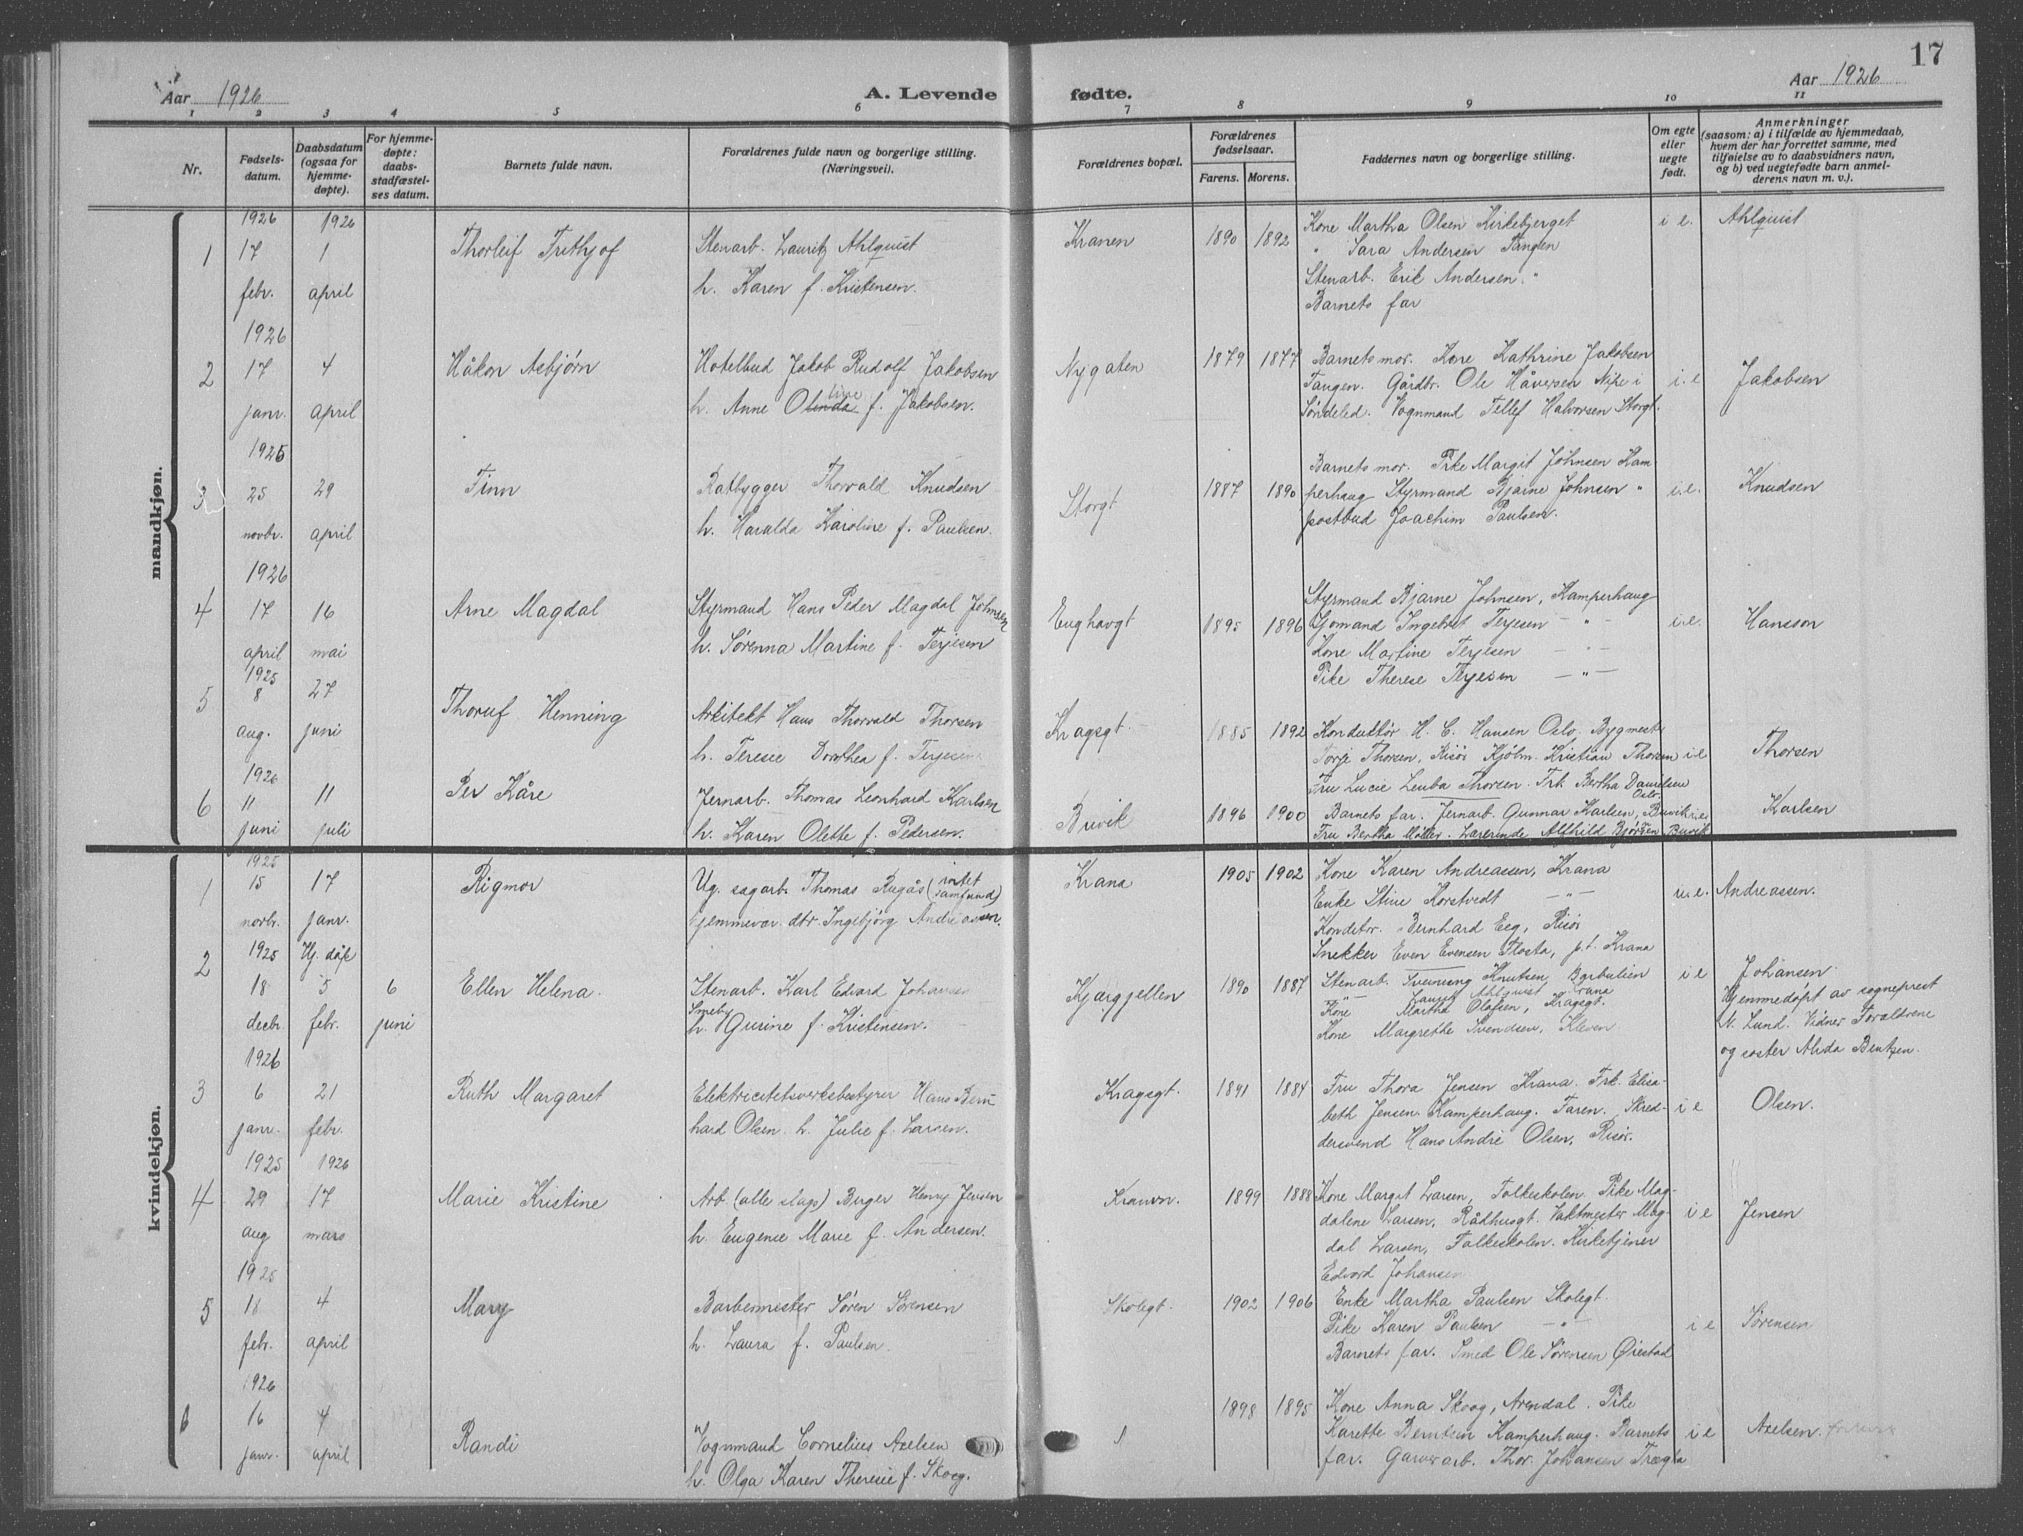 17
Aar 1926
A. Levende
fødte.
Aar 1926
1 2 3 4 5 6 7 8 9 10 11
Nr.
Fødsels-
datum.
Daabsdatum
(ogsaa for
hjemme-
døpte).
For hjemme-
døpte:
daabs-
stadfæstel-
ses datum.
Barnets fulde navn.
Forældrenes fulde navn og borgerlige stilling.
(Næringsvei).
Forældrenes bopæl.
Forældrenes
fødselsaar.
Farens. Morens.
Faddernes navn og borgerlige stilling.
Om egte
eller
uegte
født.
Anmerkninger
(saasom: a) i tilfælde av hjemmedaab,
hvem der har forrettet samme, med
tilføielse av to daabsvidners navn,
og b) ved uegtefødte barn anmel-
derens navn m. v.).
mandkjøn.
1
1926
17
febr.
1926
1
april
Thorleif Frithjof
Stenarb. Lauritz Ahlquist
h. Karen f. Kristensen.
Kranen
1890 1892
Kone Martha Olsen Kirkebjerget
" Sara Andersen Tangen
Stenarb. Erik Andersen "
Barnets far
i e.
Ahlquist
2
1926
17
janr.
4
april
Håkon Asbjørn
Hotelbud Jakob Rudolf Jakobsen
h. Anne Olinda line f. Jakobsen.
Nygaten
1879 1877
Barnets mor. Kone Kathrine Jakobsen
Tangen. Gårdbr. Ole Håversen Nipe i
Søndeled. Vognmand Tellef Halvorsen Storgt.
i. e
Jakobsen
3
1925
25
novbr.
29
april
Finn
Båtbygger Thorvald Knudsen
h. Haralda Karoline f. Paulsen.
Storgt
1887 1890
Barnets mor. Pike Margit Johnsen Kam-
perhaug Styrmand Bjarne Johnsen "
postbud Joachim Paulsen.
i.e.
Knudsen
4
1926
17
april
16
mai
Arne Magdal
Styrmand Hans Peder Magdal Johnsen
h. Sørenna Martine f. Terjesen
Enghavgt
1895 1896
Styrmand Bjarne Johnsen, Kamperhaug
Sjømand Ingebret Terjesen - " -
Kone Martine Terjesen - " -
Pike Therese Terjesen - " -
i.e.
Hansson
5
1925
8
aug.
27
juni
Henning
Arkitekt Hans Thorvald Thorsen
h. Teresie Dorothea f. Terjesen
Kragsgt.
1885 1892
Konduktør H. C. Hansen Oslo, Bygmest.
Torje Thorsen, Risør Kjøbm. Kristian Thorsen
Fru Lucie Leuba Thorsen. Frk. Bertha Danielsen
Oslo.
i.e
Thorsen
6
1926
11
juni
11
juli
Per Kåre
Jernarb. Thomas Leonhard Karlsen
h. Karen Olette f. Pedersen.
Buvik
1896 1900
Barnets far. Jernarb. Gunnar Karlsen, Buvik
Fru Bertha Møller. Lærerinde Alfhild Bjørgen Buvik
i.e.
Karlsen
kvindekjøn.
1
1925
15
novbr.
17
janr.
Rigmor
Ug. sagarb. Thomas Rugås (intet
samfund)
hjemmevær. dtr. Ingebjørg Andreassen.
Krana
1905 1902
Kone Karen Andreassen, Krana
Enke Stine Korstvedt - " -
Konditor. Bernhard Eeg, Risør
Snekker Even Evensen Flosta, p.t. Krana
u. e.
Andreassen.
2
1925
18
decbr.
Hj. døpt
5
febr.
6
juni
Ellen Helena.
Stenarb. Karl Edvard Johansen
Smeby
h. Gusine f. Kristensen.
Kjærgjellen
1890 1887
Stenarb. Sveinung Knutsen, Barbulien
- " - Lauritz Ahlquist Krana
Kone Martha Olafsen, Kragsgt.
Kone Margrethe Svendsen, Kleven
i e
Johansen.
Hjemmedøpt av sogneprest
N. Lund. Vidner Forældrene
og søster Alida Bentzen.
3
1926
6
janr.
21
febr.
Ruth Margaret
Elektricitetsverksbestyrer Hans Bern
hard Olsen h. Julie f. Larsen.
Kragsgt.
1891 1884
Fru Thora Jensen Krana. Frk. Elisa-
beth Jensen Kamperhaug. Faren. Skred-
dersvend Hans André Olsen, Risør.
i e
Olsen.
4
1925
29
aug
1926
17
mars
Marie Kristine
Arb (alle slags) Birger Henry Jensen
h. Eugenie Marie f. Andersen.
Kranen.
1899 1888
Kone Margit Larsen, Folkeskolen. Pike Mag-
dalene Larsen, Rådhusgt. Vaktmester Mag-
dal Larsen, Folkeskolen. Kirketjener
Edvard Johansen
i e
Jensen
5
1925
18
febr.
4
april
Mary
Barbermester Søren Sørensen
h. Laura f. Paulsen.
Skolegt.
1902 1906
Enke Martha Paulsen Skolegt.
Pike Karen Paulsen - " -
Barnets far. Smed Ole Sørensen Ørestad
i e
Sørensen
6
1926
16
janr.
4
april
Randi
Vognmand Cornelius Axelsen
h. Olga Karen Theresie f. Skoog.
1898 1895
Kone Anna Skoog, Arendal. Pike
Karette Berntsen Kamperhaug. Barnets
far. Garverarb. Thor Johansen
i e
Axelsen.